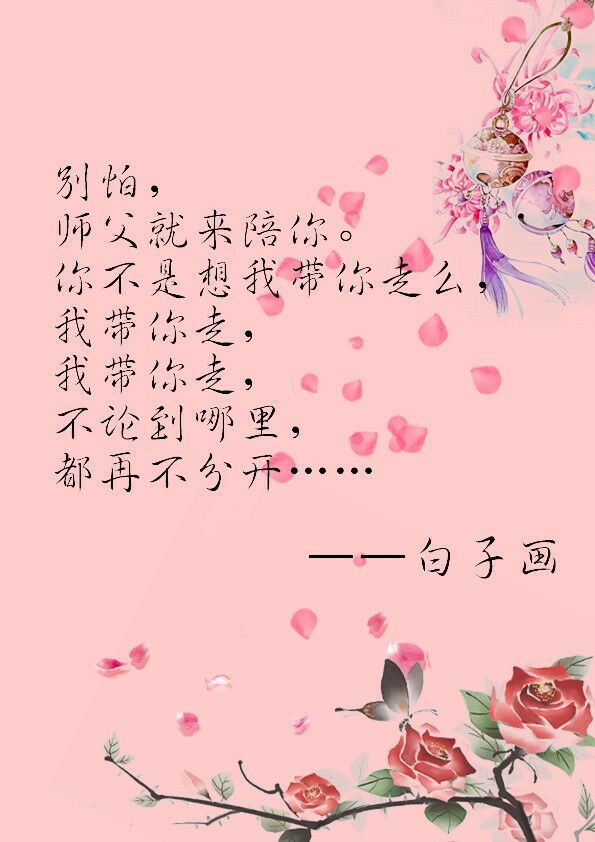 别怕，
师父就来陪你。
你不是想我带你走么，
我带你走，
我带你走，
不论到哪里，
都再不分开……
——白子画